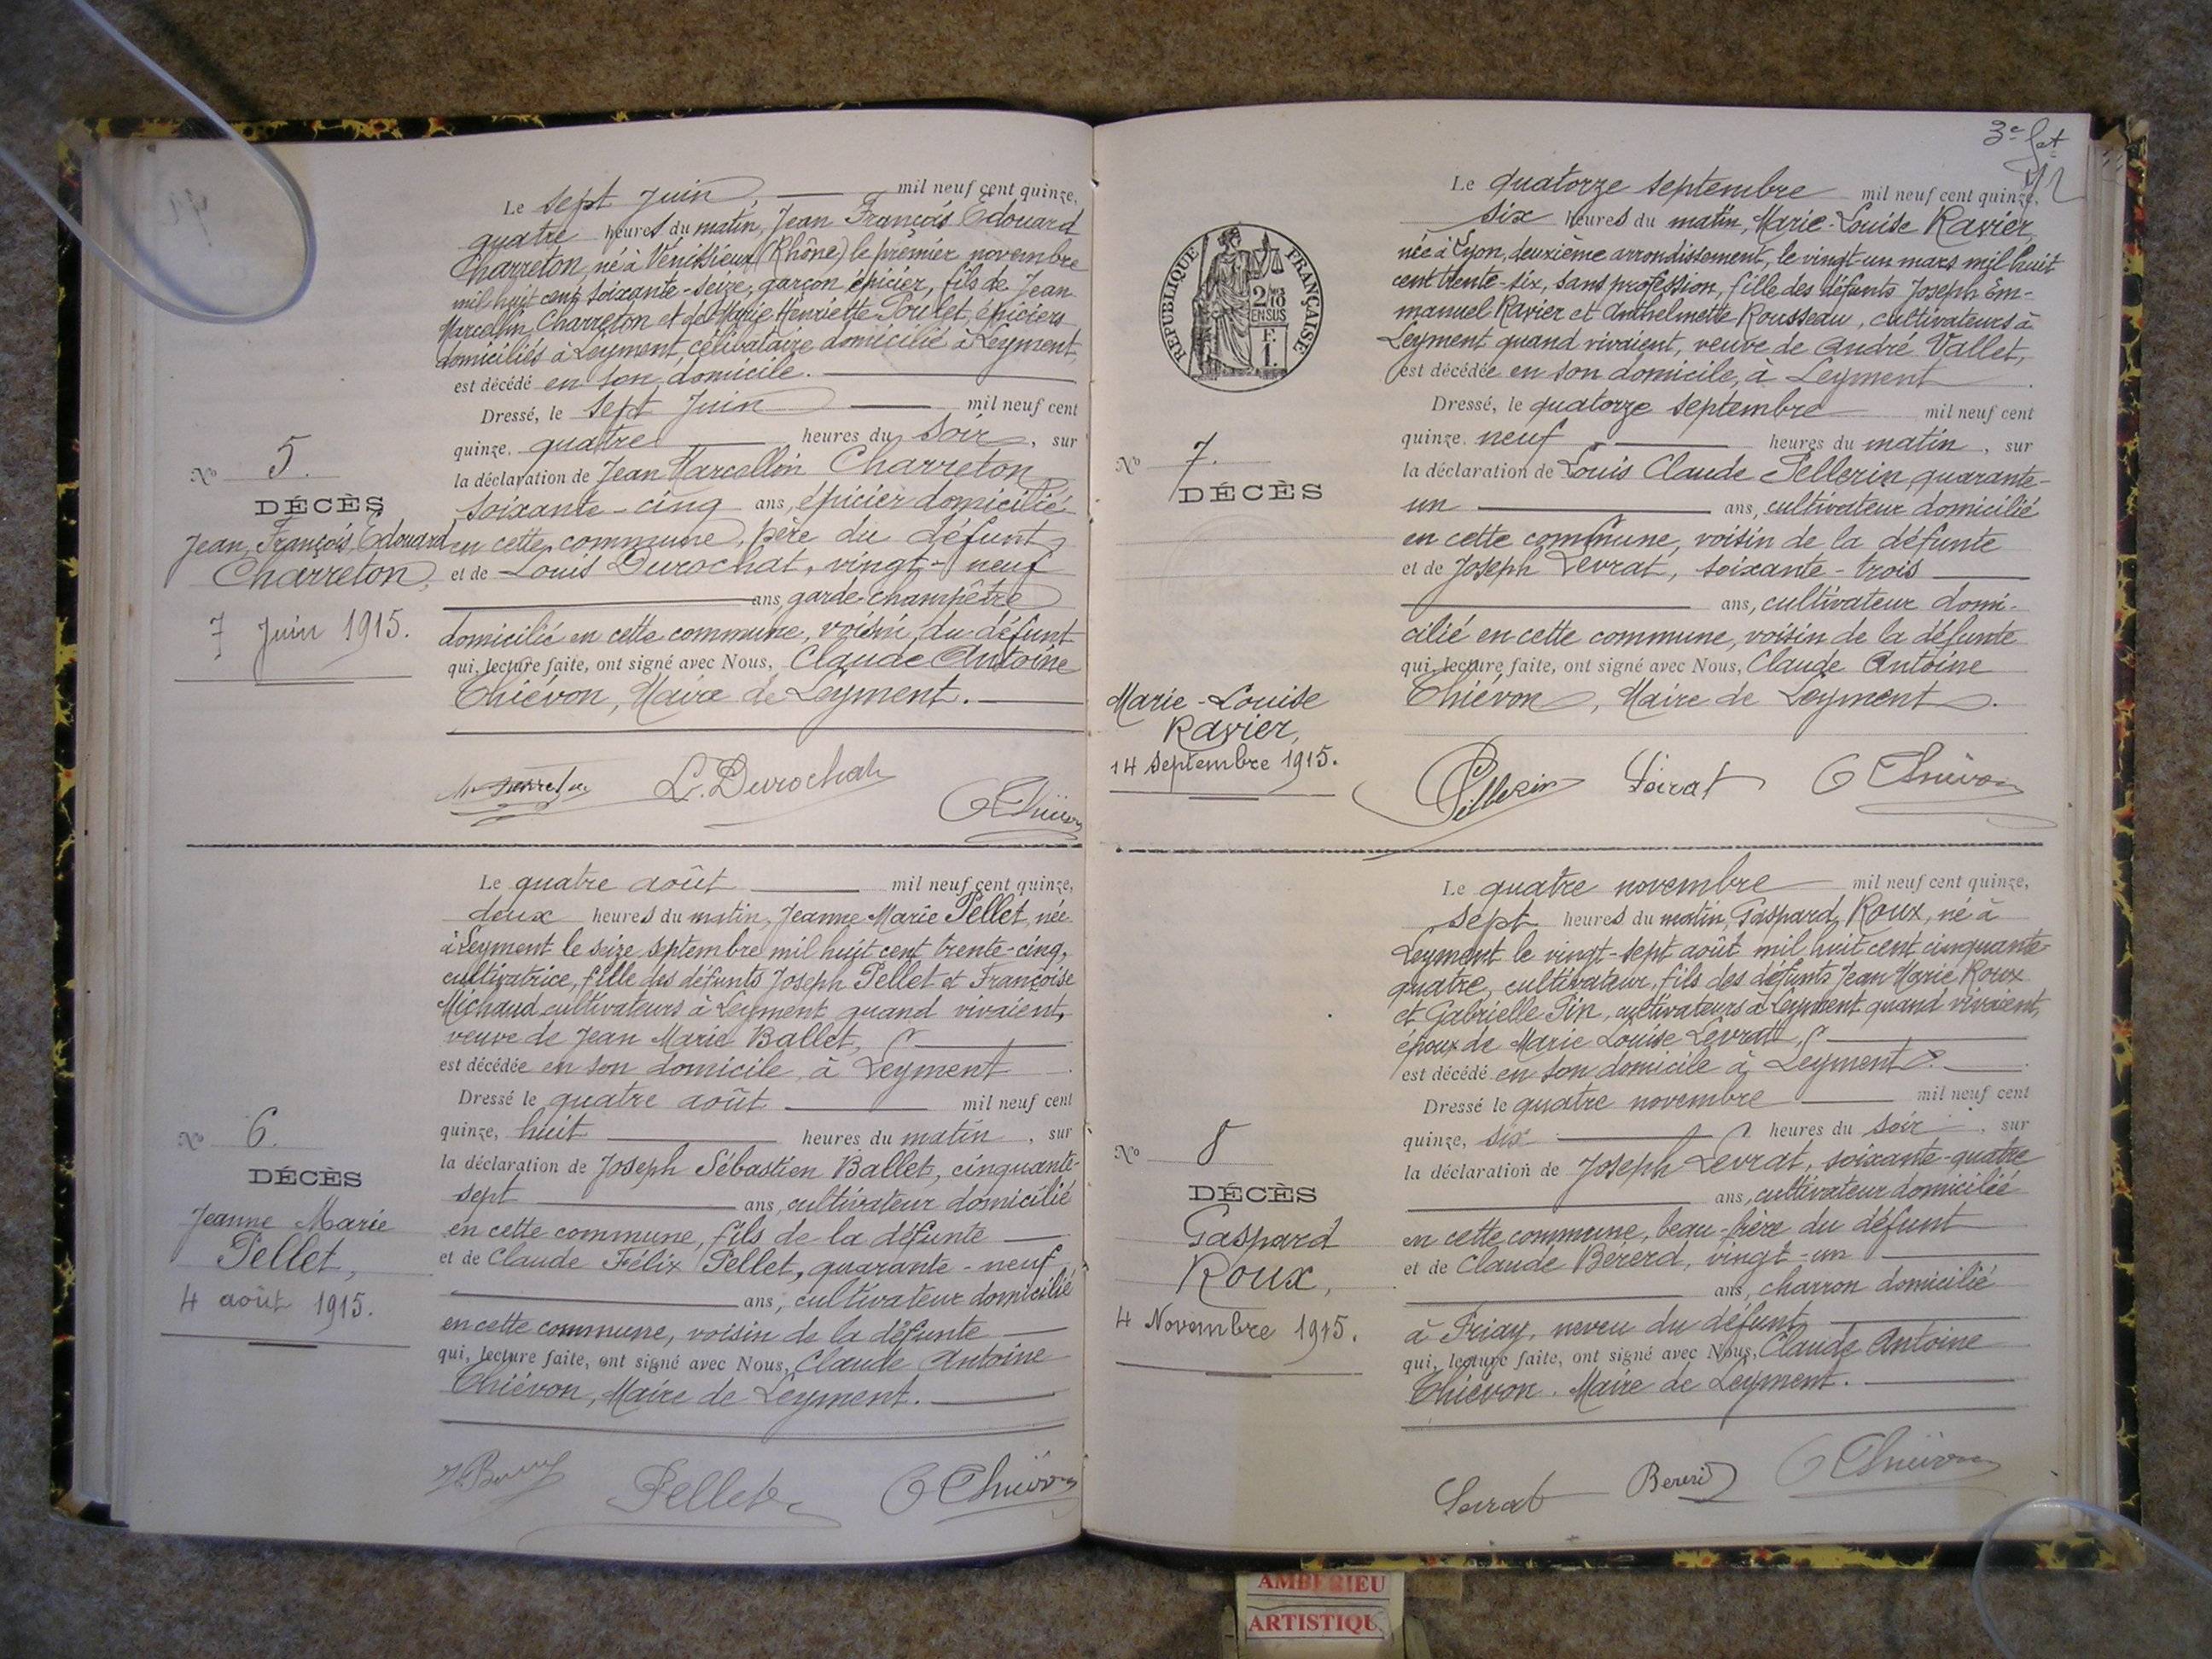 Le sept Juin, mil neuf cent quinze,
quatre heures du matin, Jean François Édouard
Charreton, né à Vénissieux (Rhône) le premier novembre
mil huit cent soixante-seize, garçon épicier, fils de Jean
Marcellin Charreton et de Marie Henriette Poulet, épiciers
domiciliés à Leyment, célibataire domicilié à Leyment,
est décédé en son domicile.
Dressé, le sept Juin mil neuf cent
quinze, quatre heures du soir, sur
la déclaration de Jean Marcellin Charreton
soixante-cinq ans, épicier domicilié
en cette commune, père du défunt
et de Louis Durochat, vingt-neuf
ans, garde-champêtre
domicilié en cette commune, voisin du défunt
qui, lecture faite, ont signé avec Nous, Claude Antoine
Thiévon, Maire de Leyment.
L. Durochat
C Thiévon
No 5.
DÉCÈS
Jean François Édouard
Charreton,
7 Juin 1915.
Le quatre août mil neuf cent quinze,
deux heures du matin, Jeanne Marie Pellet, née
à Leyment le seize septembre mil huit cent trente-cinq,
cultivatrice, fille des défunts Joseph Pellet et Françoise
Michaud cultivateurs à Leyment quand vivaient,
veuve de Jean Marie Ballet,
est décédée en son domicile, à Leyment
Dressé le quatre août mil neuf cent
quinze, huit heures du matin, sur
la déclaration de Joseph Sébastien Ballet, cinquante-
sept ans, cultivateur domicilié
en cette commune, fils de la défunte
et de Claude Félix Pellet, quarante-neuf
ans, cultivateur domicilié
en cette commune, voisin de la défunte
qui, lecture faite, ont signé avec Nous, Claude Antoine
Thiévon, Maire de Leyment.
Pellet
C Thiévon
No 6.
DÉCÈS
Jeanne Marie
Pellet,
4 août 1915.
3e
RÉPUBLIQUE FRANÇAISE
Le quatorze septembre mil neuf cent quinze,
six heures du matin, Marie-Louise Ravier,
née à Lyon, deuxième arrondissement, le vingt-un mars mil huit
cent trente-six, sans profession, fille des défunts Joseph Em-
manuel Ravier et Anthelmette Rousseau, cultivateurs à
Leyment quand vivaient, veuve de André Vallet,
est décédée en son domicile, à Leyment
Dressé, le quatorze septembre mil neuf cent
quinze, neuf heures du matin, sur
la déclaration de Louis Claude Pellerin quarante-
un ans, cultivateur domicilié
en cette commune, voisin de la défunte
et de Joseph Levrat, soixante-trois
ans, cultivateur domi-
cilié en cette commune, voisin de la défunte
qui, lecture faite, ont signé avec Nous, Claude Antoine
Thiévon, Maire de Leyment.
Pellerin Levrat C Thiévon
No 7.
DÉCÈS
Marie-Louise
Ravier,
14 Septembre 1915.
Le quatre novembre mil neuf cent quinze,
sept heures du matin, Gaspard Roux, né à
Leyment le vingt-sept août mil huit cent cinquante-
quatre, cultivateur, fils des défunts Jean Marie Roux
et Gabrielle Pin, cultivateurs à Leyment quand vivaient,
époux de Marie Louise Levrat,
est décédé en son domicile à Leyment.
Dressé le quatre novembre mil neuf cent
quinze, six heures du soir, sur
la déclaration de Joseph Levrat, soixante-quatre
ans, cultivateur domicilié
en cette commune, beau-frère du défunt
et de Claude Bererd, vingt-un
ans, charron domicilié
à Priay, neveu du défunt
qui, lecture faite, ont signé avec Nous, Claude Antoine
Thiévon, Maire de Leyment.
Levrat Bererd C Thiévon
No 8
DÉCÈS
Gaspard
Roux,
4 Novembre 1915.
AMBERIEU
ARTISTIQU